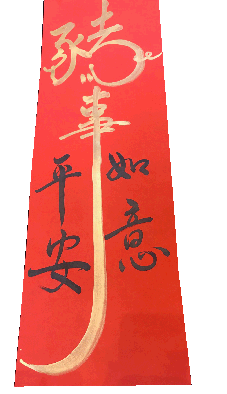 豬事
如意
平安